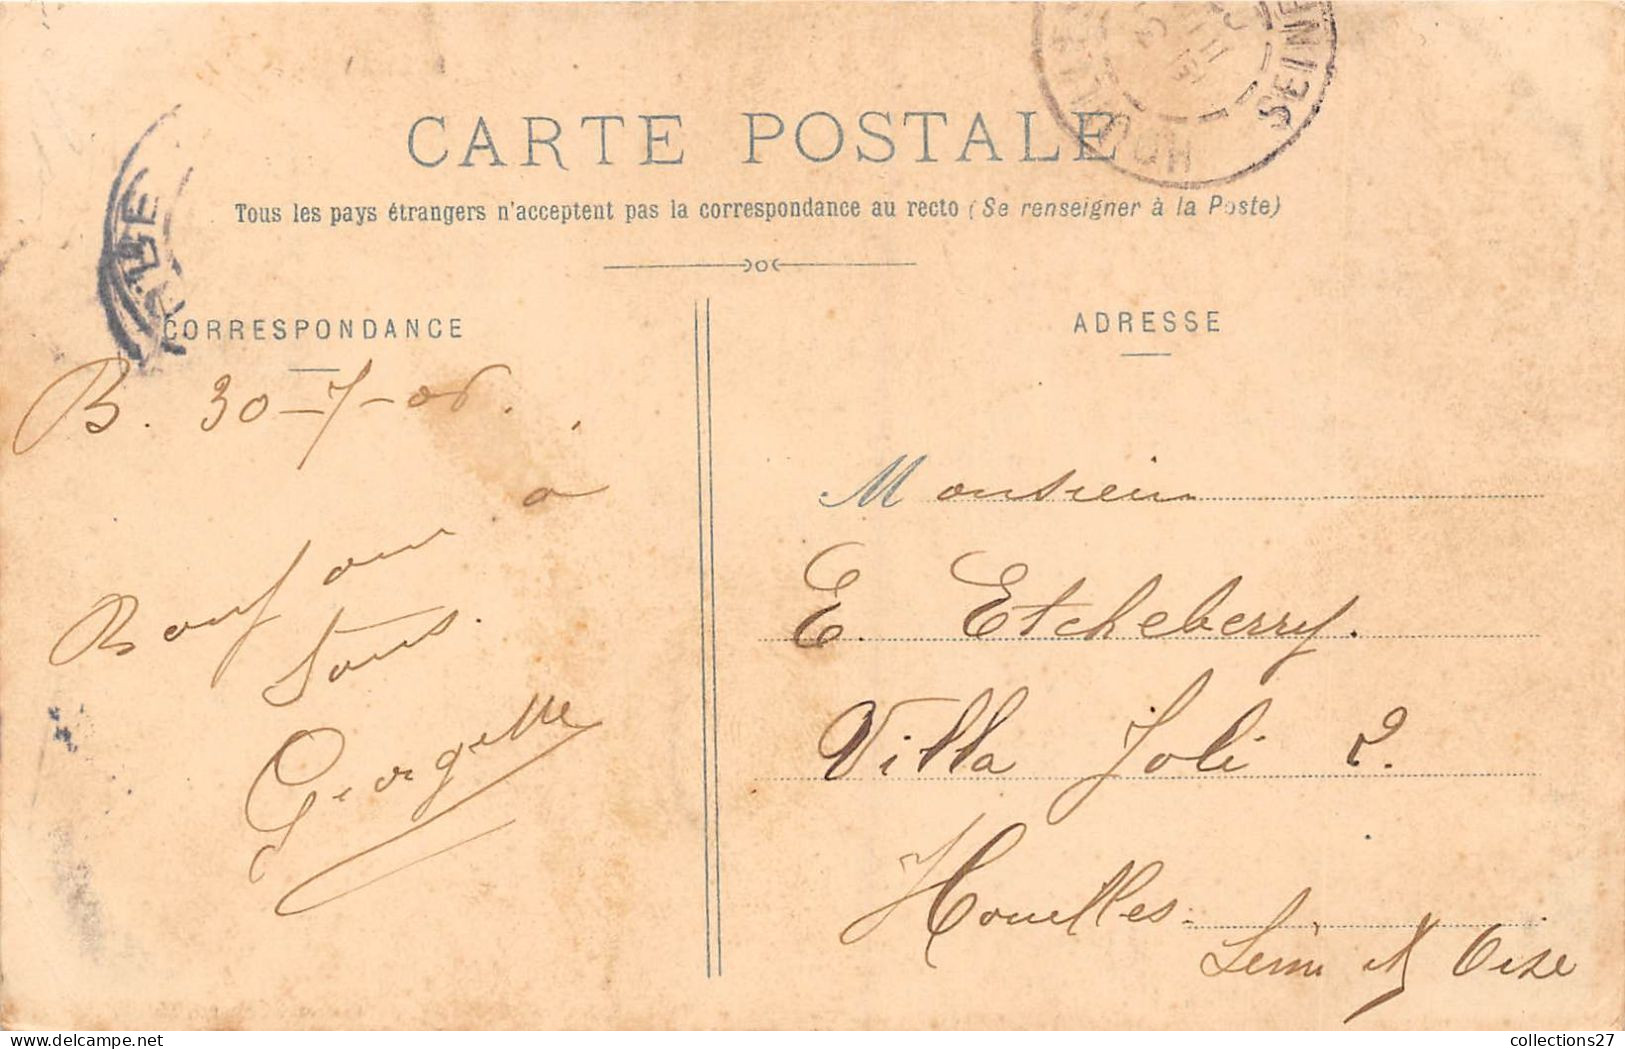 CARTE POSTALE
Tous les pays étrangers n'acceptent pas la correspondance au recto (Se renseigner à la Poste)
CORRESPONDANCE
B. 30-7-06.
à
tous.
Georgette
ADRESSE
Monsieur
E. Etcheberry.
Villa Joli 2.
Houilles.
Seine et Oise
HOUILLES
SEINE
collections27